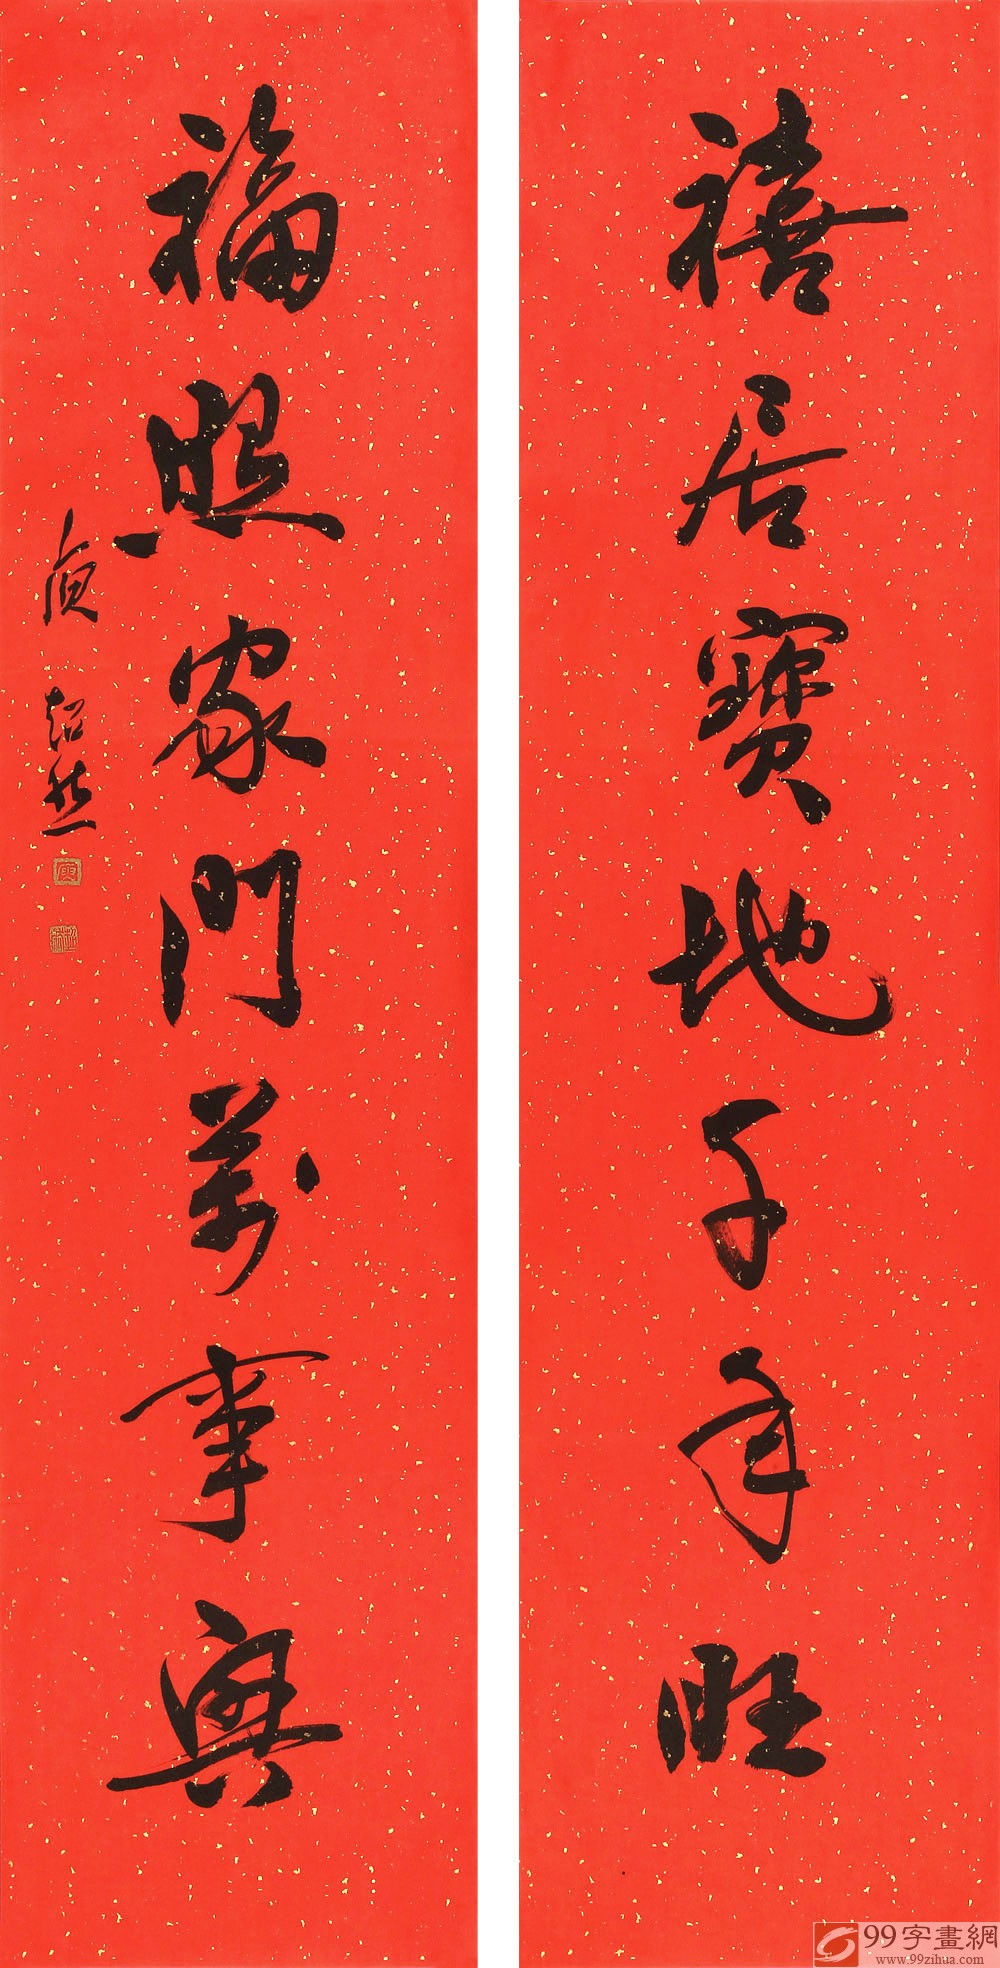 禧居寶地千年旺
福照家門萬事興
超然
99字畫網
www.99zihua.com